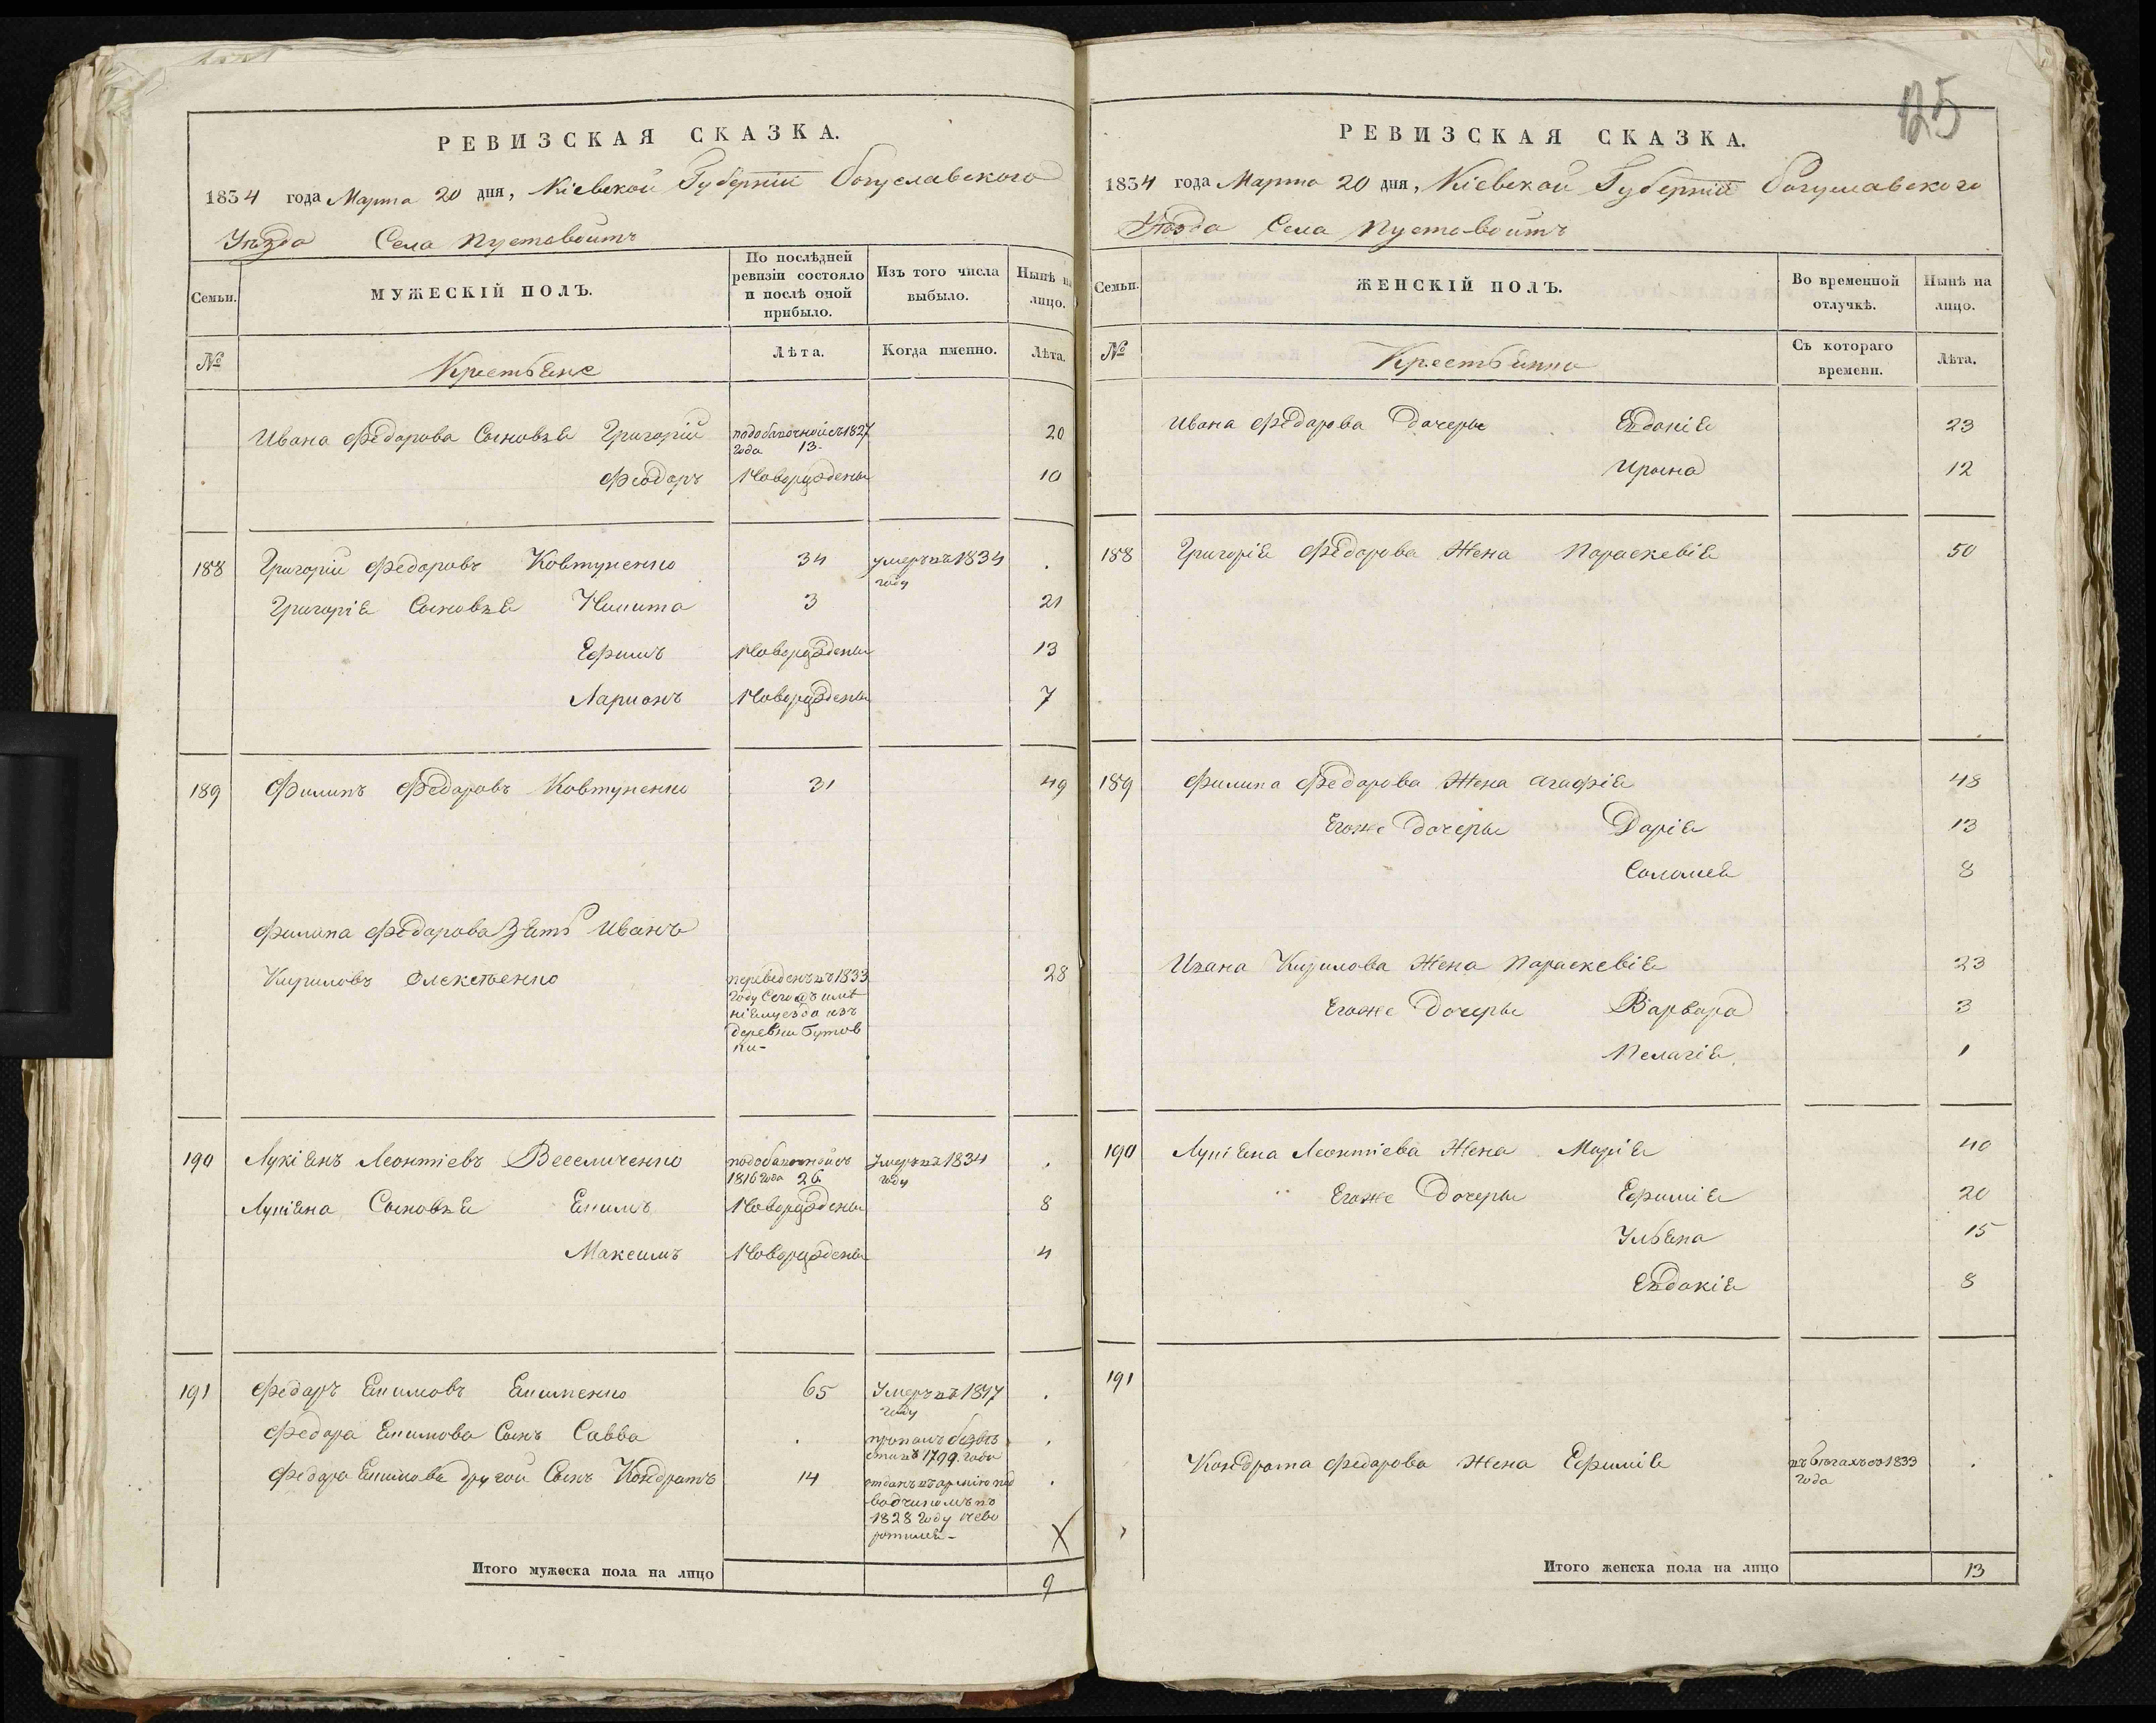 РЕВИЗСКАЯ СКАЗКА.
1834 года Марта 20 дня, Кіевской Губерніи Богуславского
Уѣзда Села Пустовойтъ
Семьи.
МУЖЕСКІЙ ПОЛЪ.
По послѣдней
ревизіи состояло
и послѣ оной
прибыло.
Изъ того числа
выбыло.
Нынѣ на
лицо.
№
Крестьяне
Лѣта.
Когда именно.
Лѣта.
Ивана Федорова Сыновья Григорій подобавочной съ 1827 20
года 13.
Феодоръ Новорожденъ 10
188 Григорій Федоровъ Ковтуненко 34 умеръ въ 1834 .
году
Григорія Сыновья Никита 3 21
Ефимъ Новорожденъ 13
Ларионъ Новорожденъ 7
189 Филипъ Федоровъ Ковтуненко 31 49
Филипа Федорова Зять Иванъ
Кириловъ Олексѣенко переведенъ въ 1833 28
году Сего имѣ
нія уезда изъ
деревни Бутов
ки-
190 Лукіянъ Леонтіевъ Веселиченко подобавочной съ Умеръ въ 1834 .
1816 года 26 году
Лукіяна Сыновья Екимъ Новорожденъ 8
Максимъ Новорожденъ 4
191 Федоръ Екимовъ Екименко 65 Умеръ въ 1817 .
году
Федора Екимова Сынъ Савва . пропалъ безвѣ .
сти въ 1799. года
Федора Екимова другой Сынъ Кондратъ 14 отданъ въ армію под .
водчикомъ въ
1828 году нево
ротился-
Х
Итого мужеска пола на лицо 9
125
РЕВИЗСКАЯ СКАЗКА.
1834 года Марта 20 дня, Кіевской Губерніи Богуславского
Уѣзда Села Пустовойтъ
Семьи.
ЖЕНСКІЙ ПОЛЪ.
Во временной
отлучкѣ.
Нынѣ на
лицо.
№
Крестьянка
Съ котораго
времени.
Лѣта.
Ивана Федорова Дочеры Евдокія 23
Ирына 12
188 Григорія Федорова Жена Параскевія 50
189 Филипа Федорова Жена Агафія 48
Егоже Дочеры Дарія 13
Соломея 8
Ивана Кирилова Жена Параскевія 23
Егоже Дочеры Варвара 3
Пелагія 1
190 Лукіяна Леонтіева Жена Марія 40
Егоже Дочеры Ефимія 20
Ульяна 15
Евдокія 8
191
Кондрата Федорова Жена Ефимія въ бѣгахъ съ 1833 .
года
Итого женска пола на лицо 13